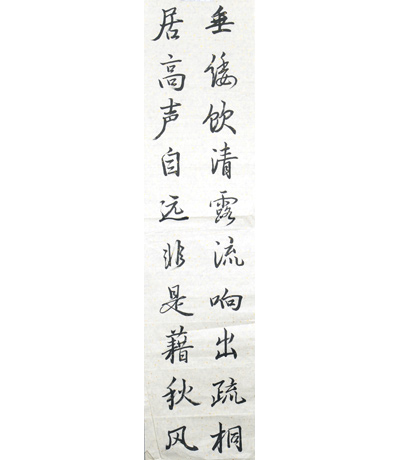 垂緌饮清露流响出疏桐
居高声自远非是藉秋风